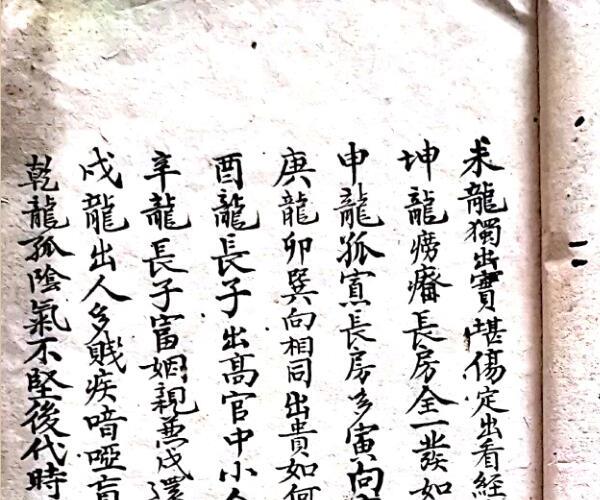 未龍獨出實堪傷定出看經
坤龍癆瘵長房全一發如
申龍孤寡長房多寅向
庚龍卯巽向相同出貴如何
酉龍長子出高官中小
辛龍長子富姻親兼戌還
戌龍出人多賤疾喑啞盲
乾龍孤陰氣不堅後代時